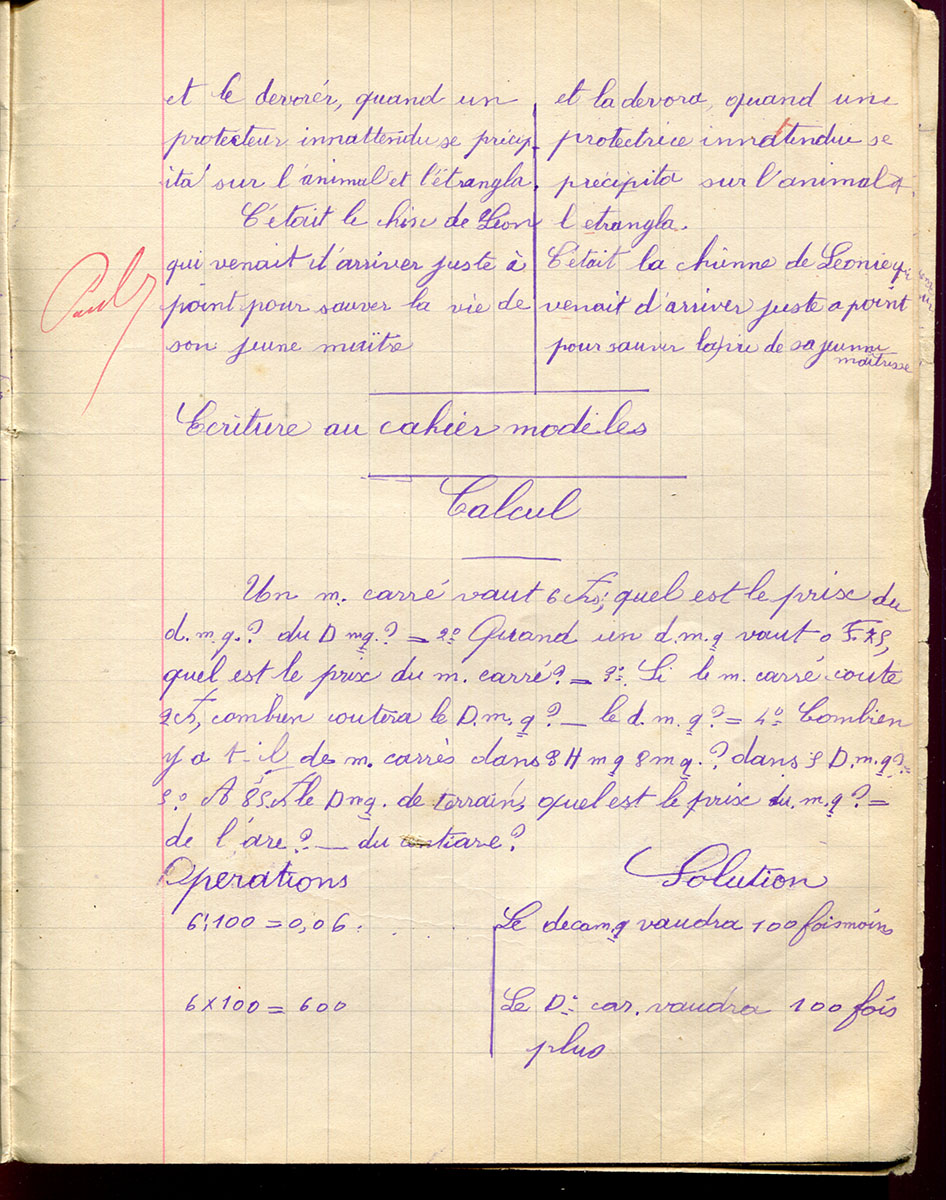 et le devorér, quand un
protecteur innattendu se précip
ita sur l'animal et l'étrangla.
C'était le chien de Léon
qui venait d'arriver juste à
point pour sauver la vie de
son jeune maître
et la devora, quand une
protectrice innatendue se
précipita sur l'animal et
l etrangla.
C'était la chienne de Leonie qui
venait d'arriver juste a point
pour sauver la vie de sa jeunne
maîtresse
Ecriture au cahier modèles
Calcul
Un m. carré vaut 6 frs; quel est le prix du
d.m.q.? du Dmq.? = 2º Quand un d.m.q vaut 0 F.75,
quel est le prix du m. carré? = 3º Si le m. carré coute
2f, combien coutera le D.m.q? — le d.m.q? = 4º Combien
y a t-il de m. carrés dans 3 Hmq 8mq.? dans 5 D.m.q? =
5º A 85f le Dmq. de terrain, quel est le prix du m.q? =
de l'are? — du centiare?
Opérations
Solution
6:100 = 0,06.
Le decam.q vaudra 100 fois moins
6 x 100 = 600
Le D. car. vaudra 100 fois
plus